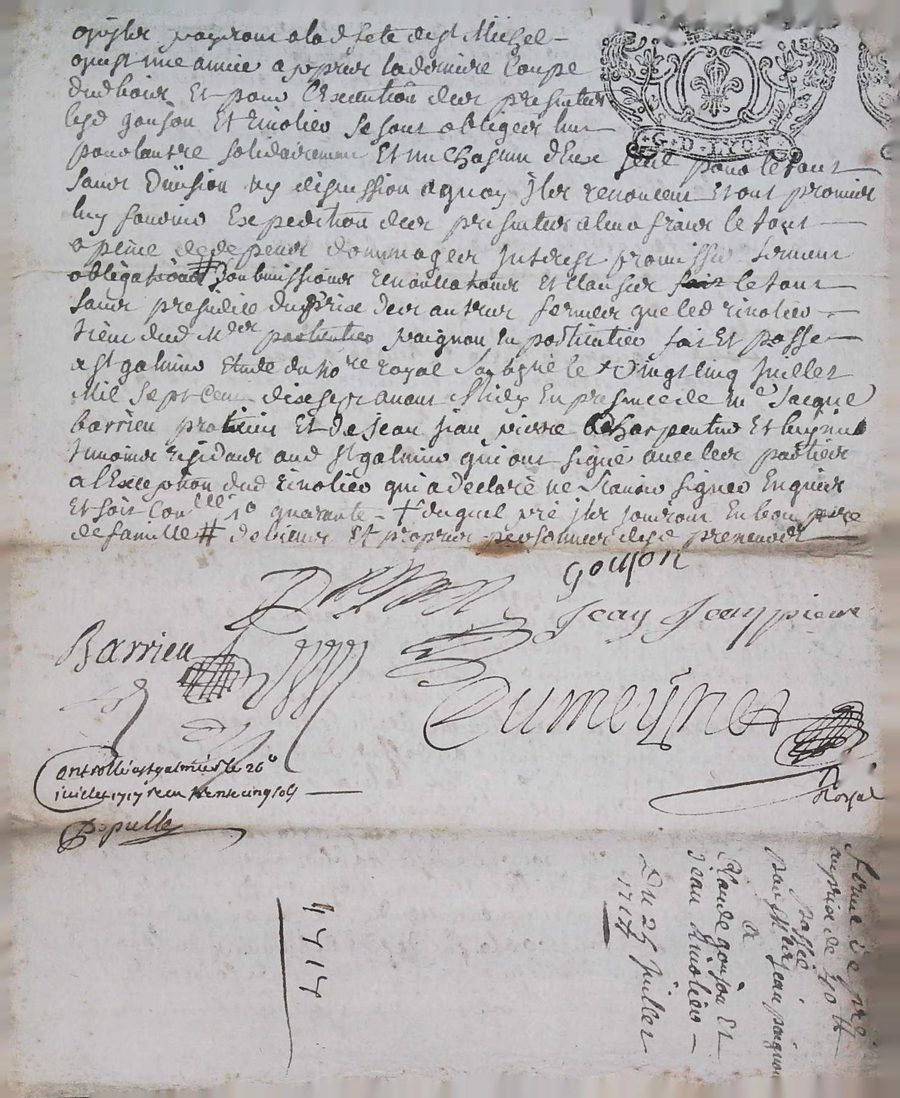 payront a lad fete de st Michel
une année apres la derniere Coupe
Et pour l'Execution des presentes
lesd goujon Et rinolieu se sont obliges lun
G·D·LYON
pour lautre solidairement Et un Chacun deux seul pour le tout
sans Division ny discussion a quoy ils renoncent Et ont promis
luy fournir Expedition des presentes a leurs frais le tout
a peine de depens dommages Interest promission serment
obligations # soubmissions renonciations Et clauses le tout
sans prejudice du prix des autres fermes que led rinolieu
tient dud particulier fait Et passé
a st galmier Etude du no.re royal le vingt cinq Juillet
Mil Sept Cent dix sept avant Midy En presence de me Jacque
barrieu praticien Et de jean jean pierre Charpentier
tesmoins residans aud st galmier qui ont signé avec les parties
a l'Exception dud rinolieu qui a declaré ne scavoir signer Enquis
quarante + duquel pré ils jouiront En bon pere
de famille # de biens Et propres personnes desd preneurs
goujon
Jean Jean pierre
Barrieu
Dumeynet
Royal
Controllé a st galmier le 26e
juillet 1717 receu cinq sols
Populle
ferme de pré
au prix de 40 tt
passé
par Jean paignon
a
Claude goujon Et
jean Rinolieu
Du 25 Juillet
1717
1717